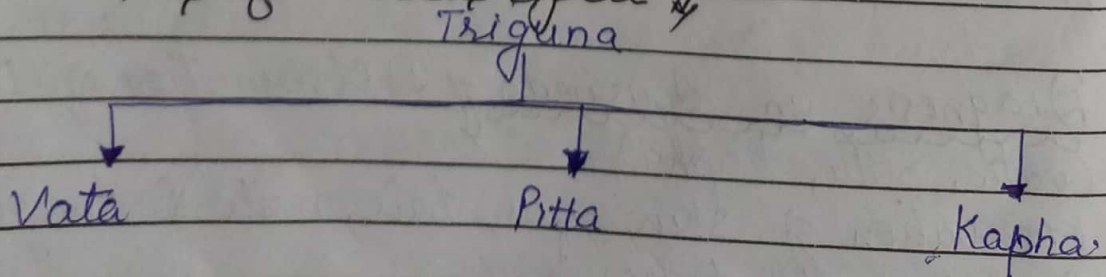 Triguna
Vata Pitta Kapha